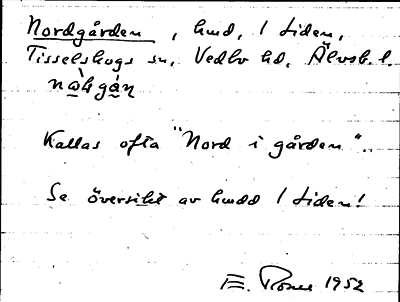 Nordgården, hmd, Liden,
Tisselskogs sn, Vedbo hd, Älvsb. l.
Kallas ofta "Nord i gården"..
Se översikt av hmdd Liden!
1952